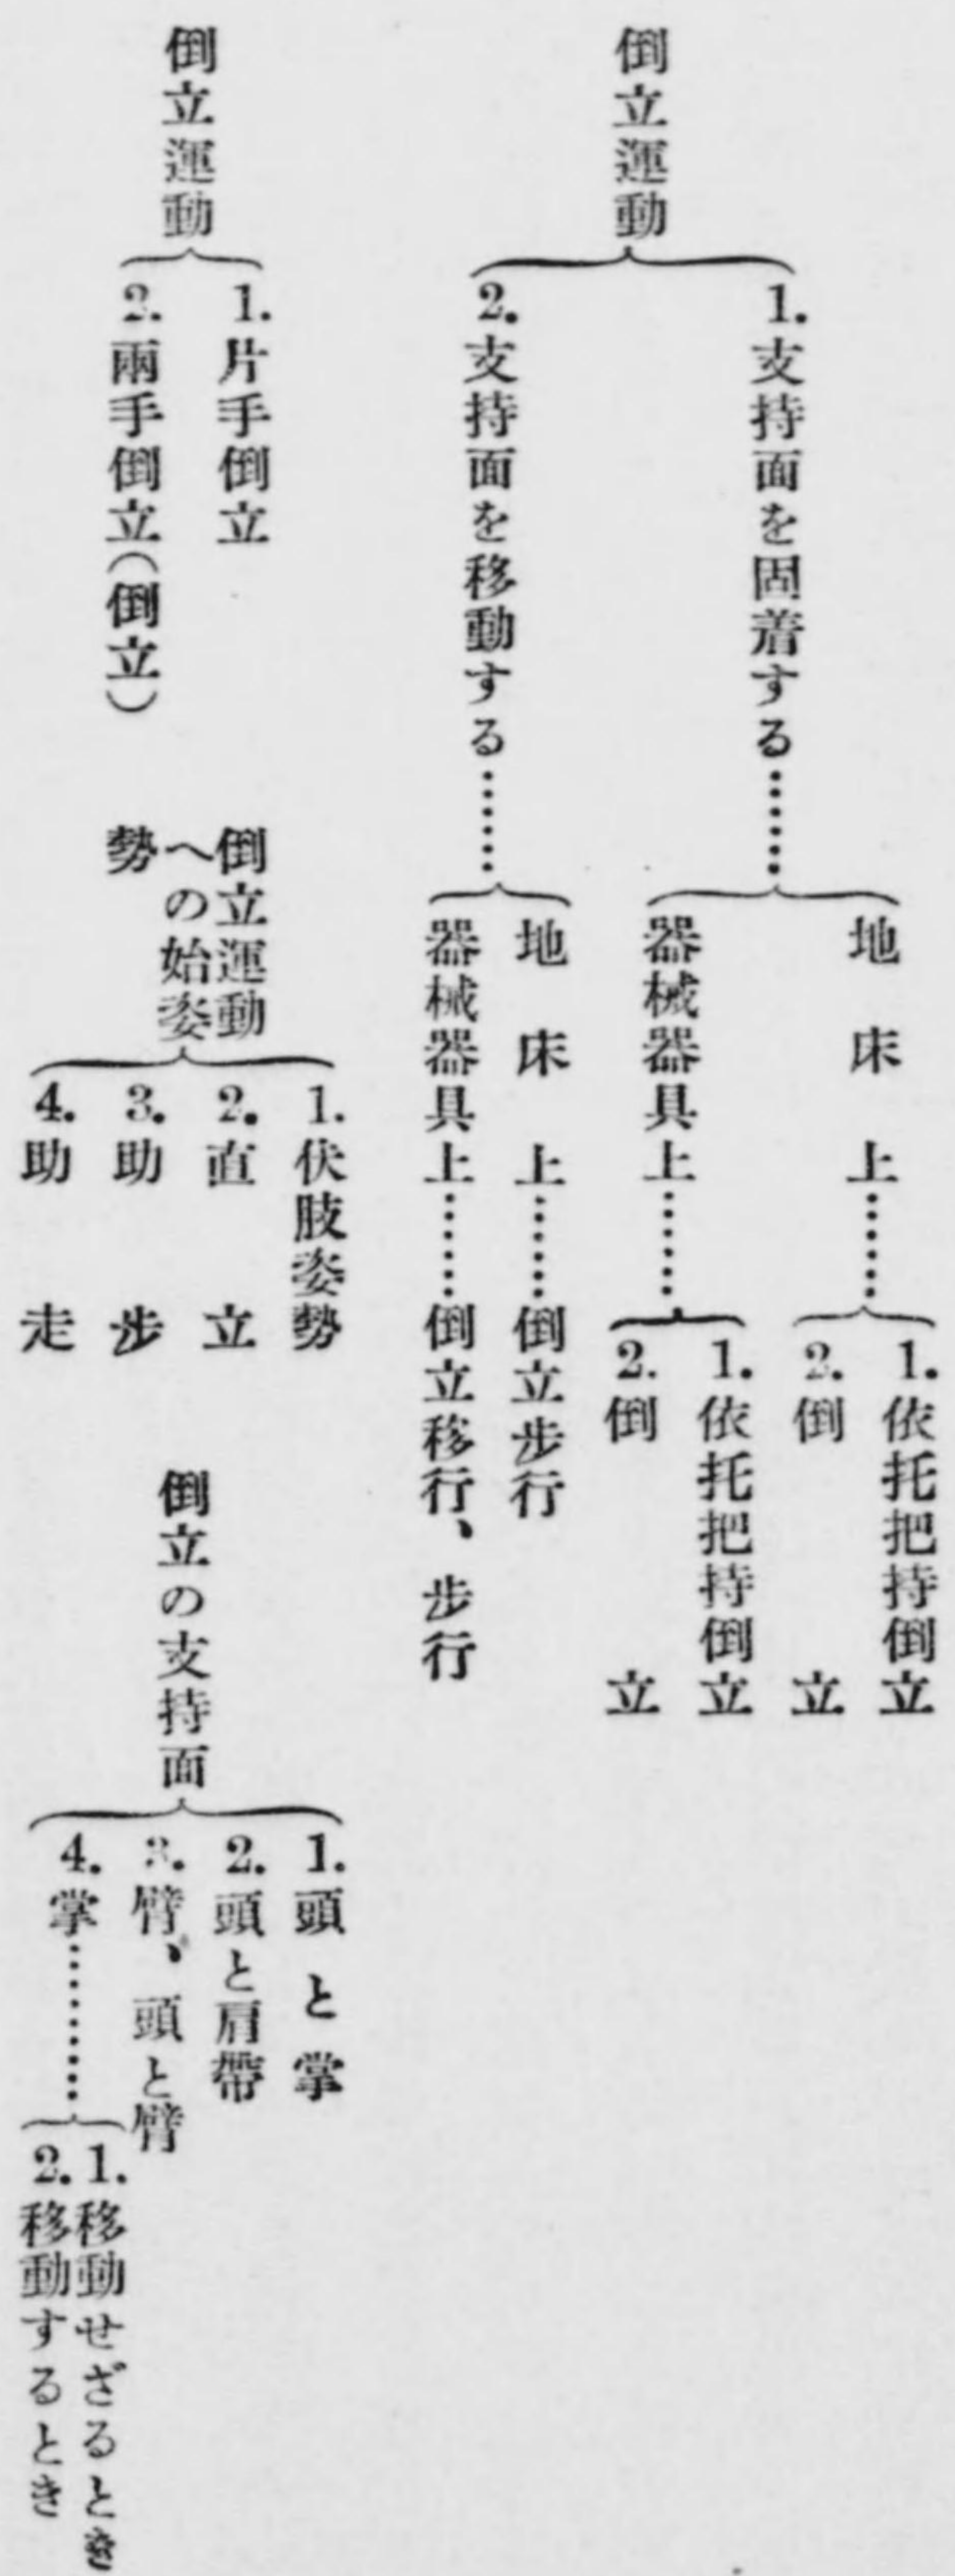 倒立運動
1.支持面を固着する……
地床上……
1.依托把持倒立
2.倒立
器械器具上……
1.依托把持倒立
2.倒立
2.支持面を移動する……
地床上……倒立步行
器械器具上……倒立移行、步行
倒立運動
1.片手倒立
2.兩手倒立(倒立)
倒立運動
への始姿
勢
1.伏肢姿勢
2.直立
3.助步
4.助走
倒立の支持面
1.頭と掌
2.頭と肩帶
3.臂、頭と臂
4.掌………
1.移動せざるとき
2.移動するとき